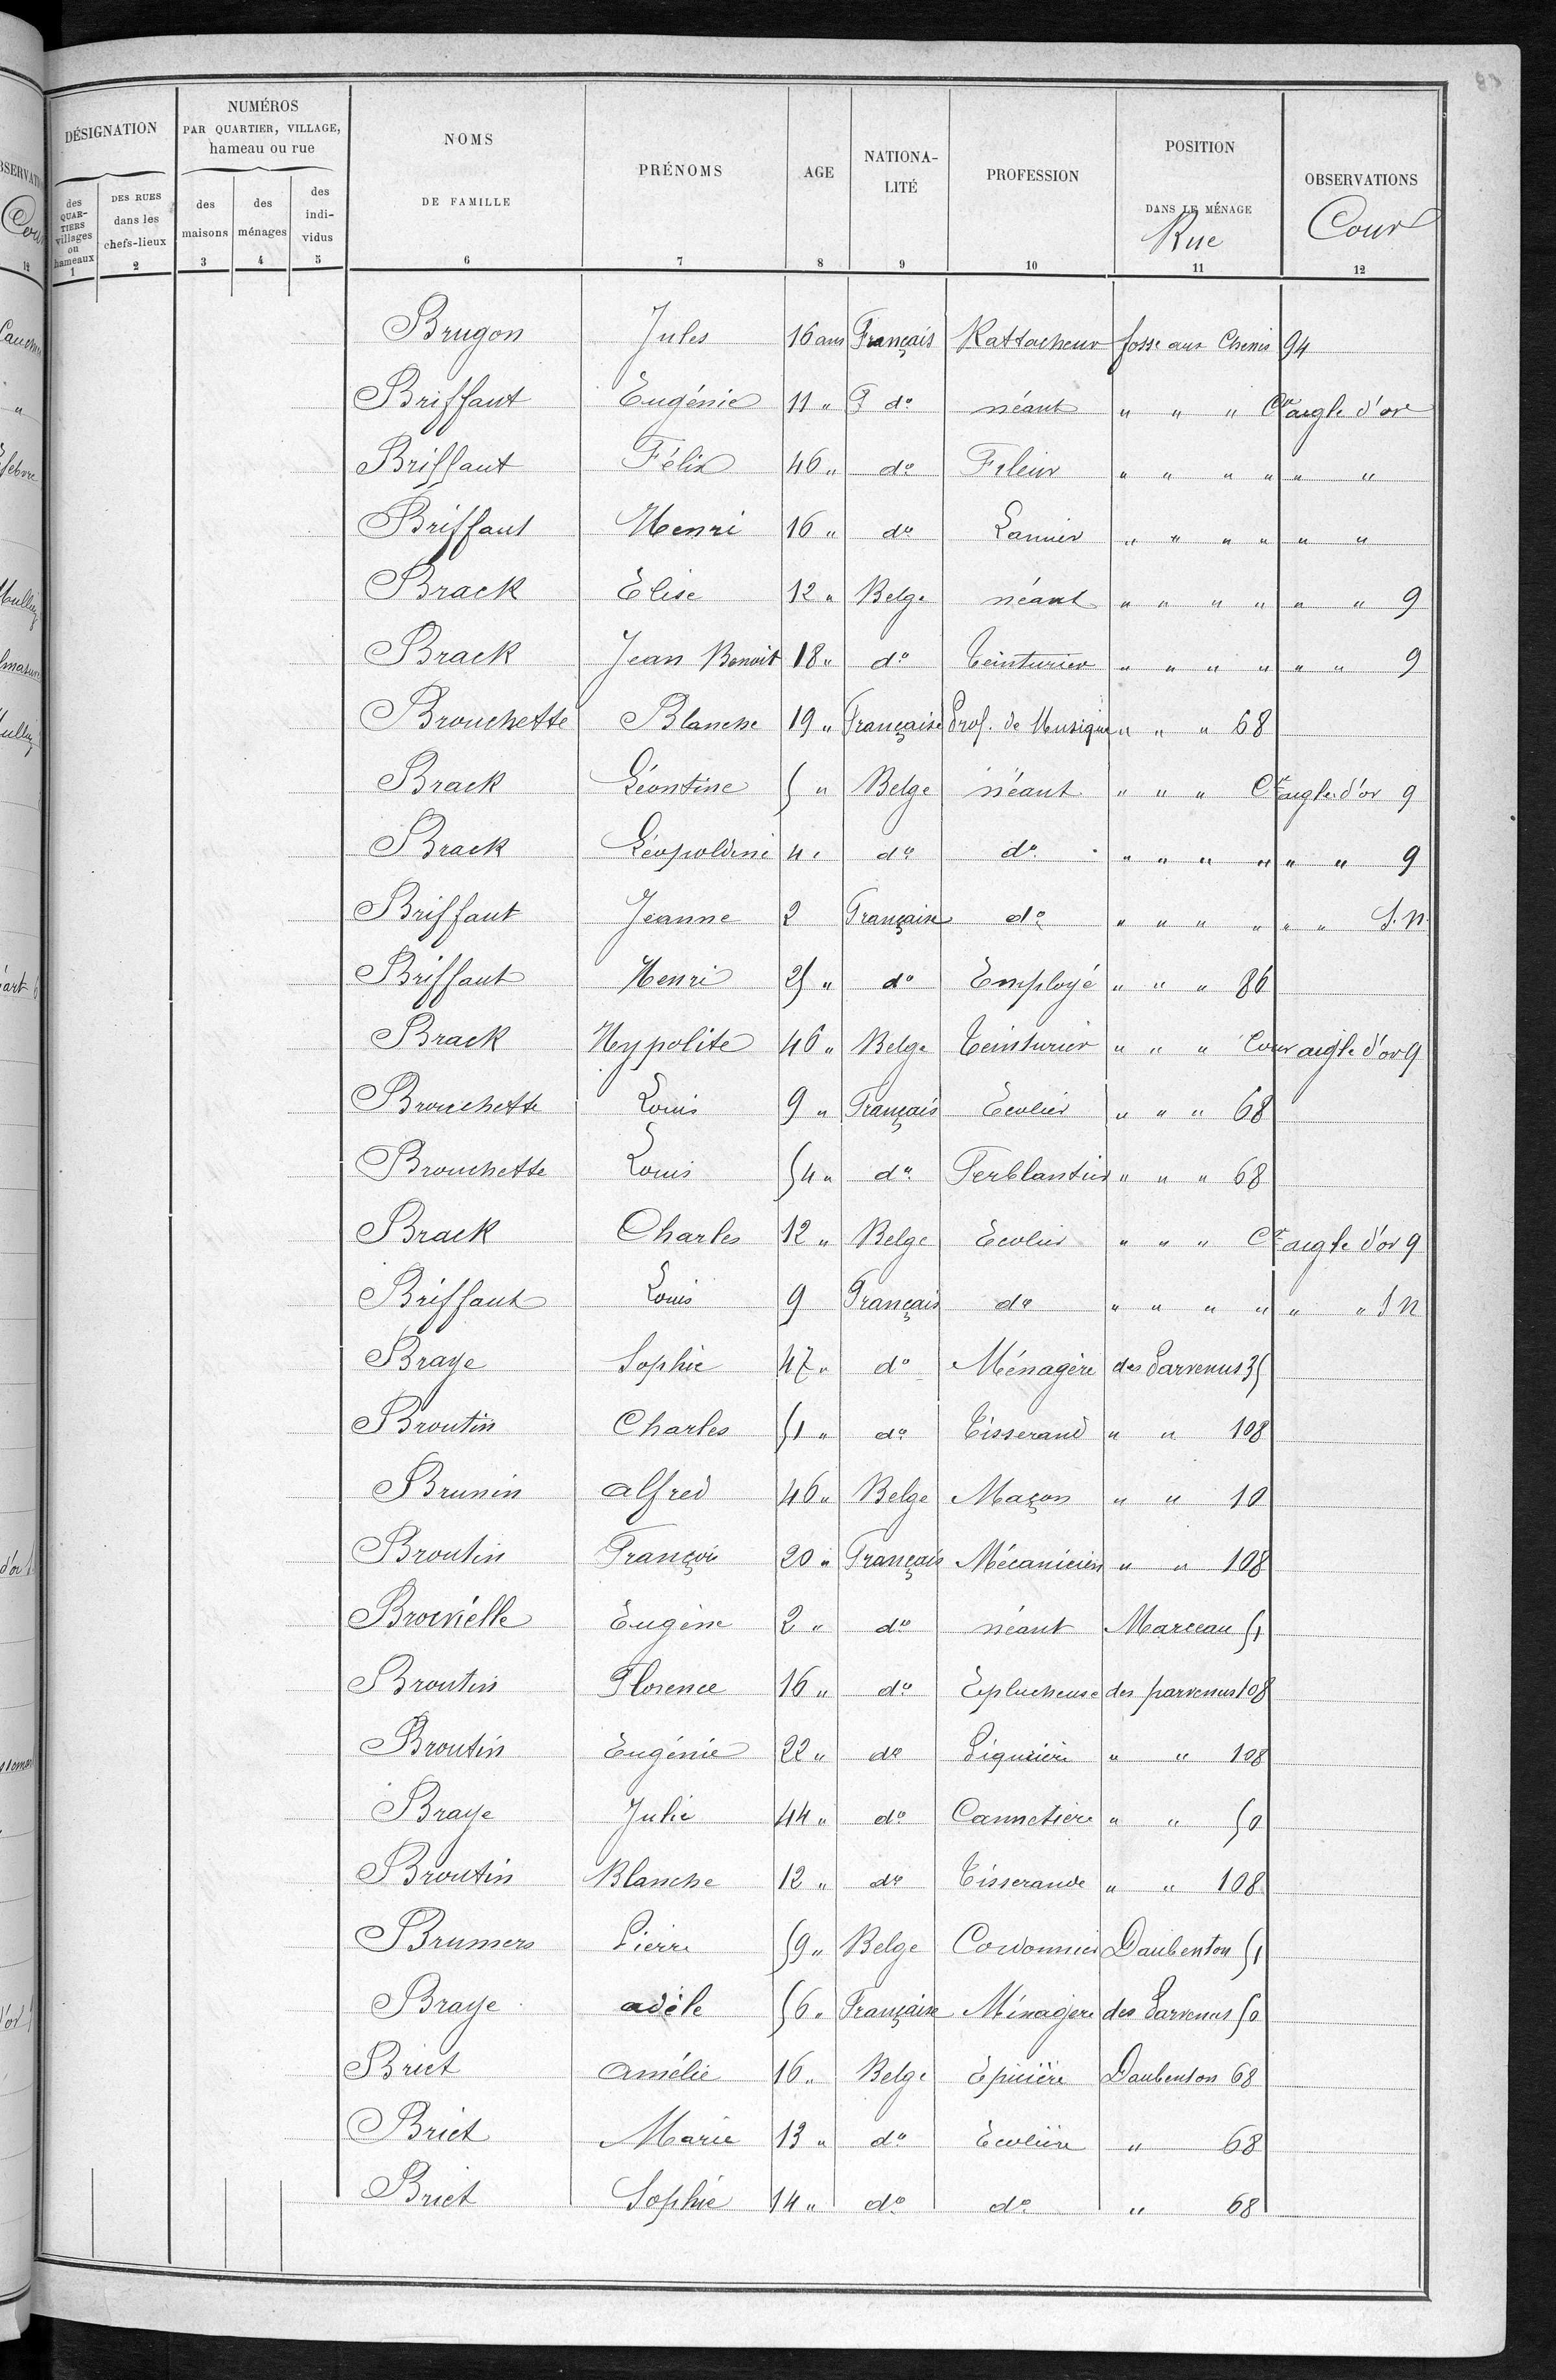 DÉSIGNATION
NUMÉROS
PAR QUARTIER, VILLAGE,
hameau ou rue
NOMS
DE FAMILLE
PRÉNOMS
AGE
NATIONA-
LITÉ
PROFESSION
POSITION
DANS LE MÉNAGE
Rue
OBSERVATIONS
Cour
des QUARTIERS villages ou hameaux
DES RUES dans les chefs-lieux
des maisons
des ménages
des indi-vidus
1 2 3 4 5 6 7 8 9 10 11 12
Brugon Jules 16 ans Français Rattacheur fosse aux Chenes 94
Briffaut Eugénie 11 " do néant " " " Cr aigle d'or
Briffaut Félix 46 " do Fileur " " " " " "
Briffaut Henri 16 " do Lamier " " " " " "
Brack Elise 12 " Belge néant " " " " " " 9
Brack Jean Benoit 18 " do Teinturier " " " " " " 9
Brouchette Blanche 19 " Française Prof. de Musique " " " 68
Brack Léontine 5 " Belge néant " " " Cr aigle d'or 9
Brack Léopoldine 4 " do do " " " " " " 9
Briffaut Jeanne 2 Française do " " " " " " S.N.
Briffaut Henri 25 " do Employé " " " 86
Brack Hypolite 46 " Belge Teinturier " " " Cour aigle d'or 9
Brouchette Louis 9 " Français Ecolier " " " 68
Brouchette Louis 54 " do Ferblantier " " " 68
Brack Charles 12 " Belge Ecolier " " " Cr aigle d'or 9
Briffaut Louis 9 Français do " " " " " " S N
Braye Sophie 47 " do Ménagère des Parvenus 35
Broutin Charles 51 " do Tisserand " " 108
Brunin Alfred 46 " Belge Maçon " " 10
Broutin François 20 " Français Mécanicien " " 108
Eugène 2 " do néant Marceau 51
Broutin Florence 16 " do Eplucheuse des parvenus 108
Broutin Eugénie 22 " do " " 108
Braye Julie 44 " do Cannetière " " 50
Broutin Blanche 12 " do Tisserande " " 108
Brumers Pierre 59 " Belge Cordonnier Daubenton 51
Braye adèle 56 " Française Ménagère des Parvenus 50
Briet Amélie 16 " Belge Epicière Daubenton 68
Briet Marie 13 " do Ecolière " 68
Briet Sophie 14 " do do " 68